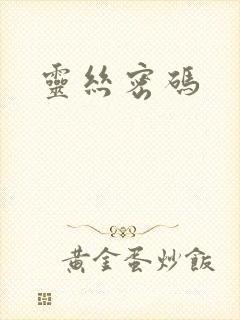 靈絲密碼
黃金蛋炒飯